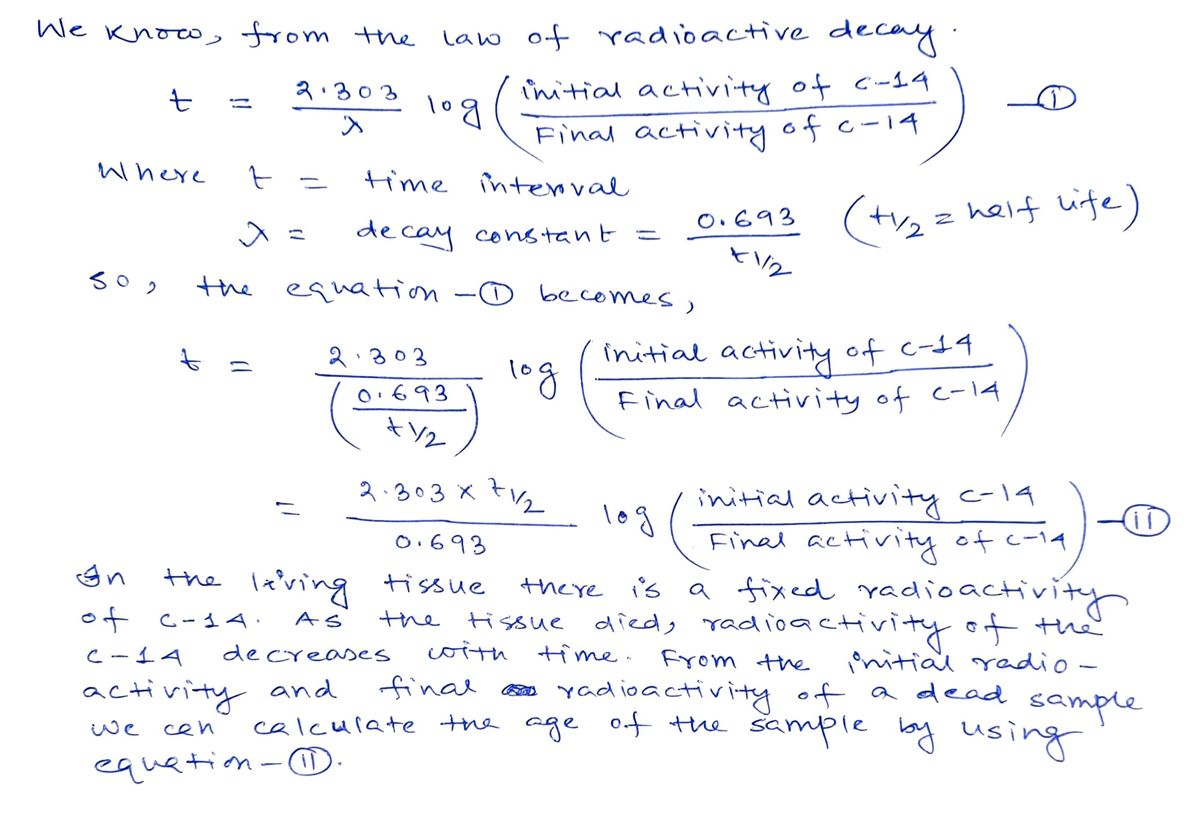 We know, from the law of radioactive decay.
t = 2.303/λ log (initial activity of c-14 / Final activity of c-14) —①
Where t = time interval
λ = decay constant = 0.693/t1/2 (t1/2 = half life)
so, the equation -① becomes,
t = 2.303/(0.693/t1/2) log (initial activity of c-14 / Final activity of c-14)
= 2.303 × t1/2 / 0.693 log (initial activity c-14 / Final activity of c-14) —ⅱ
In the living tissue there is a fixed radioactivity
of c-14. As the tissue died, radioactivity of the
c-14 decreases with time. From the initial radio-
activity and final radioactivity of a dead sample
we can calculate the age of the sample by using
equation-Ⅱ.